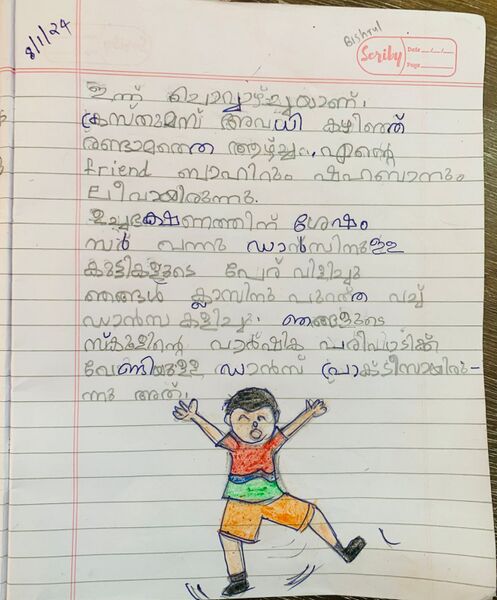 8/1/24
Bishrul
Scriby
Date
Page
ഇന്ന് ചൊവ്വാഴ്ച്ചയാണ്.
ക്രസ്തുമസ് അവധി കഴിഞ്ഞ്
രണ്ടാമത്തെ ആഴ്ച്ചം. എന്റെ
friend ബാഹിറും ഷഹബാനും
ലീവായിരുന്നു.
ഉച്ചഭക്ഷണത്തിന് ശേഷം
സർ വന്നു ഡാൻസിനുള്ള
കുട്ടികളുടെ പേര് വിളിച്ചു
ഞങ്ങൾ ക്ലാസിനു പുറത്ത് വച്ച്
ഡാൻസ് കളിച്ചു. ഞങ്ങളുടെ
സ്കൂളിന്റെ വാർഷിക പരിപാടിക്ക്
വേണ്ടിയുള്ള ഡാൻസ് പ്രാക്ടീസായിരു-
ന്നു അത്.